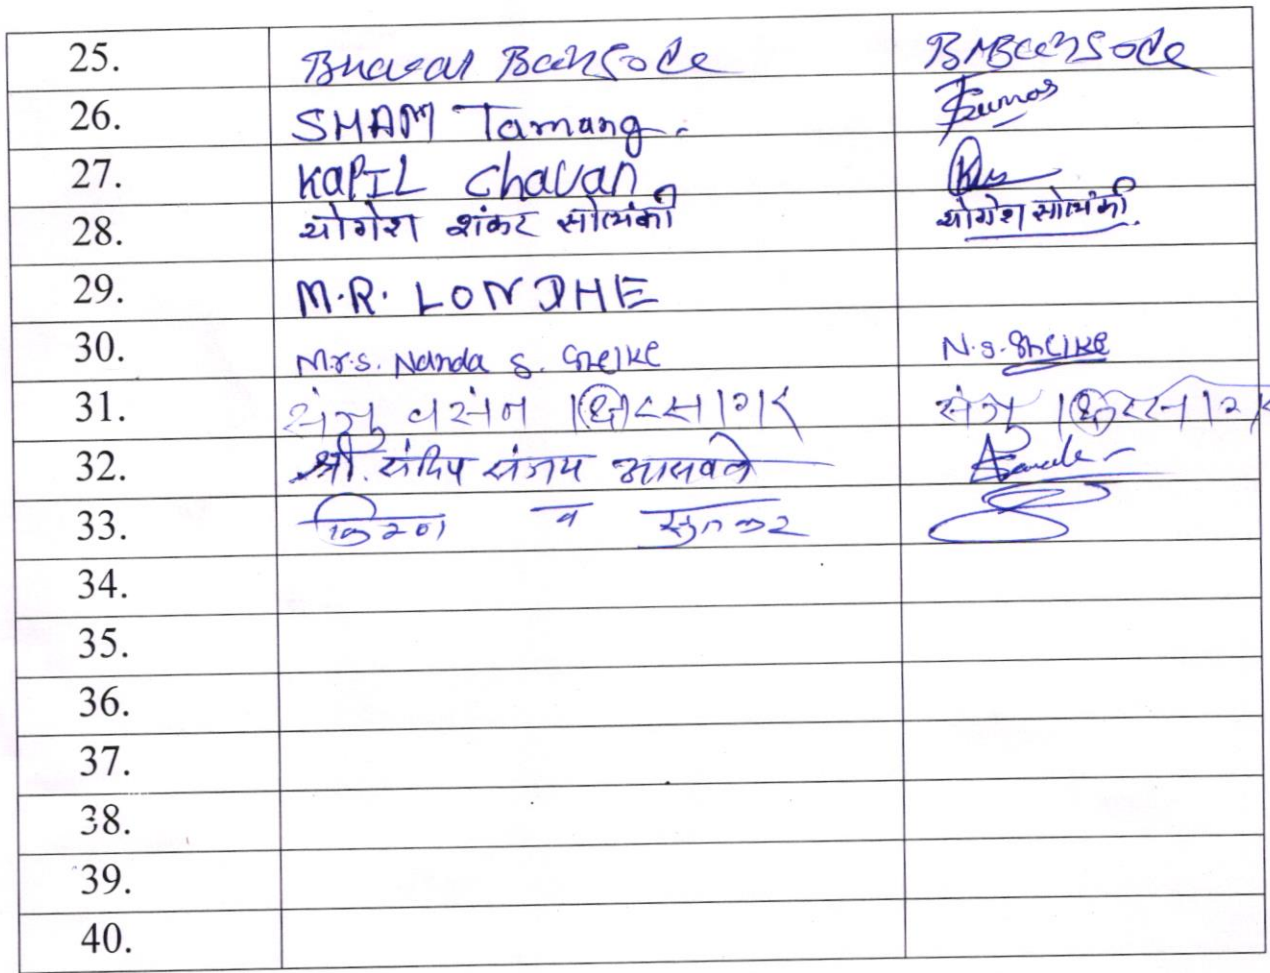 25. Bhavan Bansode BMBansode
26. SHAM Tamang.
27. KAPIL Chavan
28. योगेश शंकर सोलंकी योगेश सोलंकी
29. M.R. LONDHE
30. Mrs. Nanda S. Shelke N.S. Shelke
31. संजु वसंत क्षिरसागर संजु क्षिरसागर
32. श्री. संदिप संजय आसवले
33. किरण व सुतकर
34.
35.
36.
37.
38.
39.
40.